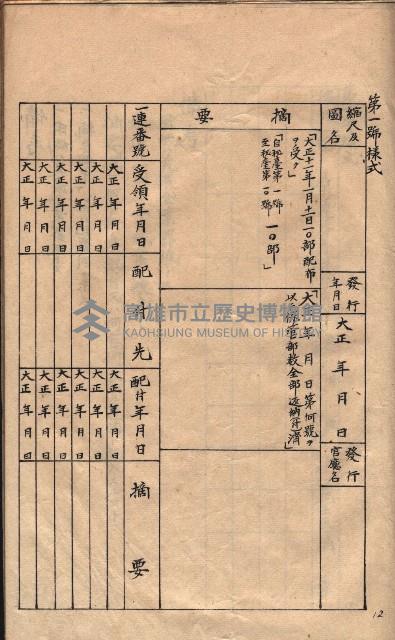 第一號樣式
縮尺及圖名
發行年月日
大正 年 月 日
發行官廳名
摘要
「大正十一年一月十一日一〇部配布
ヲ受ク」
「自秘臺第一號
至秘臺第一〇號 一〇部」
「大正 年 月 日第何號ヲ
以保管部數全部返納濟」
一連番號
受領年月日
配付先
配付年月日
摘要
大正 年 月 日
大正 年 月 日
大正 年 月 日
大正 年 月 日
大正 年 月 日
大正 年 月 日
大正 年 月 日
大正 年 月 日
大正 年 月 日
大正 年 月 日
大正 年 月 日
大正 年 月 日
高雄市立歷史博物館
KAOHSIUNG MUSEUM OF HISTORY
12